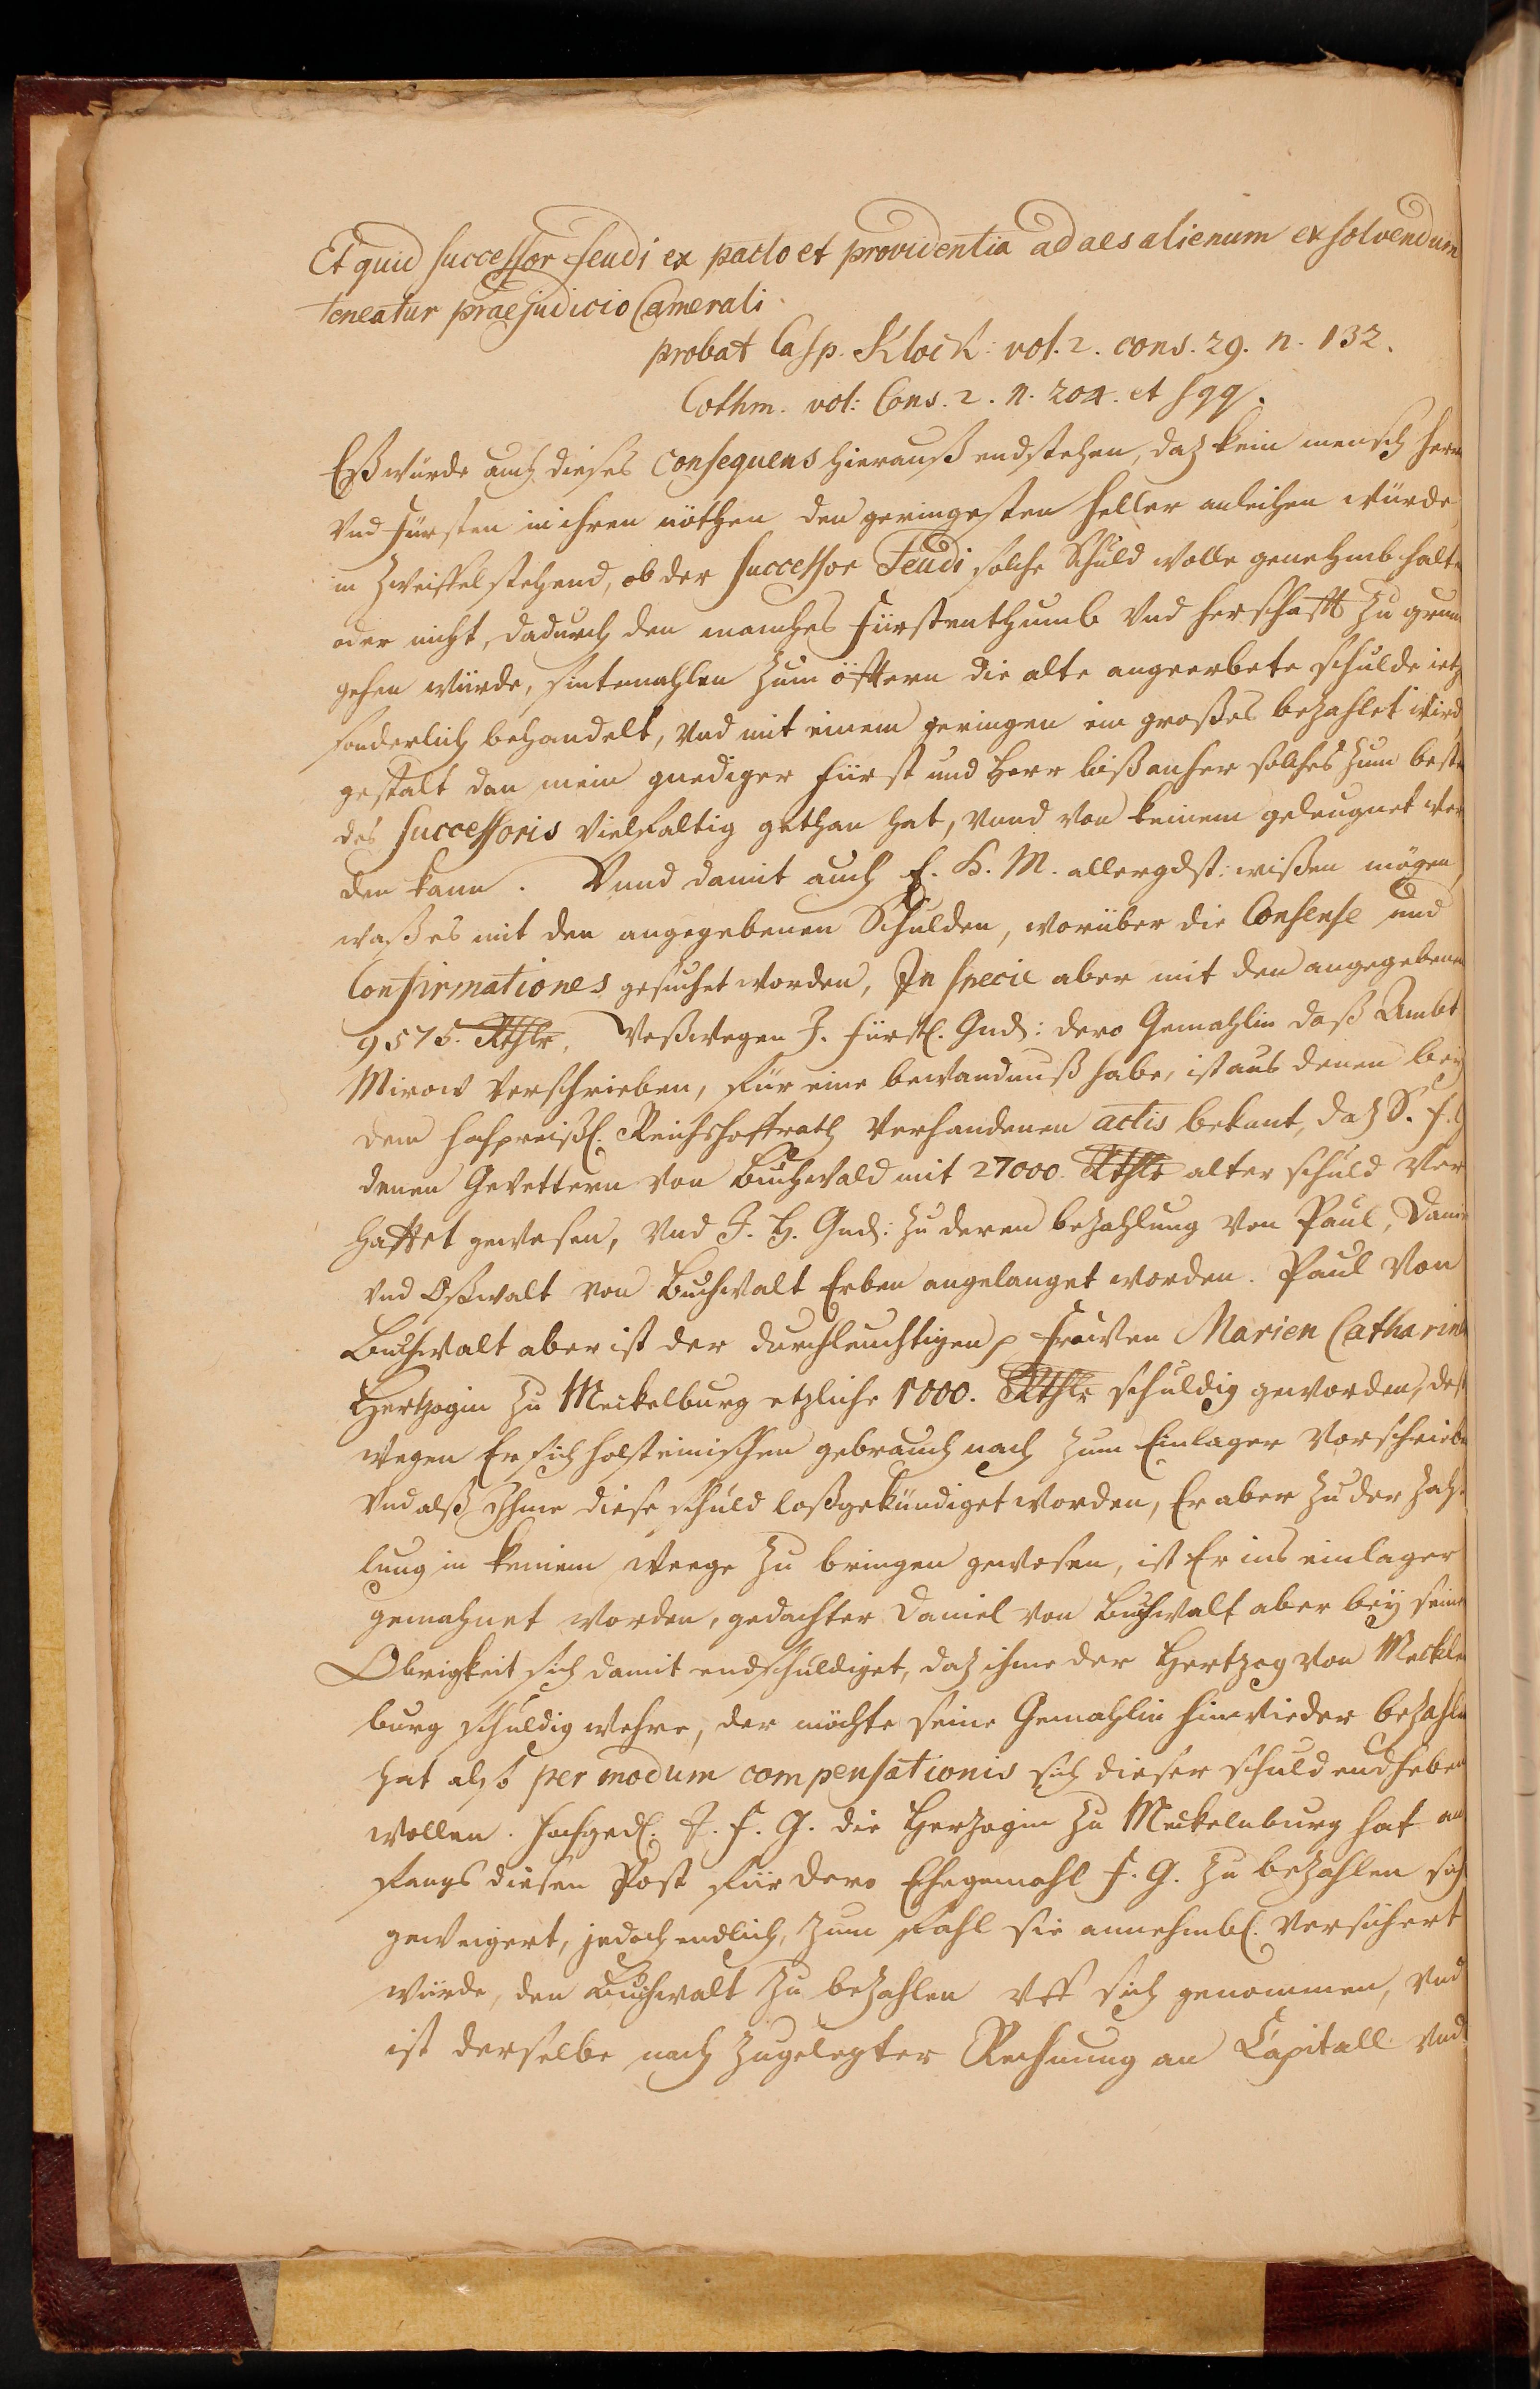 Et quid successor feudi ex pacto et providentia ad aes alienum exsolvendum
teneatur praejudicio Camerali
probat Casp. Klock: vol. 2. cons. 29. n. 132.
Cothm. vol: Cons. 2. n. 204. et sqq.
Eß würde auch dieses consequens hierauß endstehen, daz kein mensch herrn
Vnd Fürsten in ihren nöthen den geringesten heller anleihen würde
in Zweiffel stehend, ob der successor Feudi solche Schuld wolle genehmb halte
oder nicht, dadurch den manches Fürstenthumb Vnd herschafft zu grun
gehen würde, sintemahlen zum öfftern die alte angeerbete schulde
sonderlich behandelt, Vnd mit einem geringen ein großes bezahlet wird
gestalt dan mein gnediger Fürst und Herr bißanher solches zum beste
des successoris Vielfaltig gethan hat, Vnnd von keinem geleugnet wer
den kann. Vnnd damit auch E. K. M. allergdst: wißen mögen,
waß es mit den angegebenen Schulden, worüber die Consense und
Confirmationes gesuchet worden, In specie aber mit den angegebenen
9575. Rthlr, Weßwegen J. Fürstl. Gnd: dero Gemahlin daß Ambt
Mirow verschrieben, für eine bewandnuß habe, ist aus denen bey
dem hochpreißl. Reichshoffrath Verhandenen actis bekant, daz S. f. G
denen Gevettern von Buchwald mit 27000. Rthlr alter schuld Ver
hafftet gewesen, Vnd J. H. Gnd: zu deren bezahlung von Paul, Danie
Vnd Oßwalt von Buchwalt Erben angelanget worden. Paul Von
Buchwalt aber ist der durchleuchtigen p Frawen Marien Catharinen
Hertzogin zu Meckelburg etzliche 1000. Rthlr schuldig geworden, deß
wegen Er sich holsteinischen gebrauch nach zum Einlager Verschriebe
Vnd alß Ihme diese schuld loßgekündiget worden, Er aber zu der zah-
lung in keinem weege zu bringen gewesen, ist Er ins einlager
gemahnet worden, gedachter Daniel von Buchwalt aber bey seine
Obrigkeit sich damit endschuldiget, daz ihme der Hertzog von Meckeln
burg schuldig wehre, der möchte seine Gemahlin hinwieder bezahle
hat also per modum compensationis sich dieser schuld endheben
wollen. hochged. J. F. G. die Herzogin zu Meckelnburg hat an
fangs diesen Post für dero Ehegemahl F. G. zu bezahlen sich
geweigert, jedoch endlich, zum fahl sie annehmbl. versichert
würde, den Buchwalt zu bezahlen Vff sich genommen, Vnd
ist derselbe nach zugelegter Rechnung an Capitall Vnd